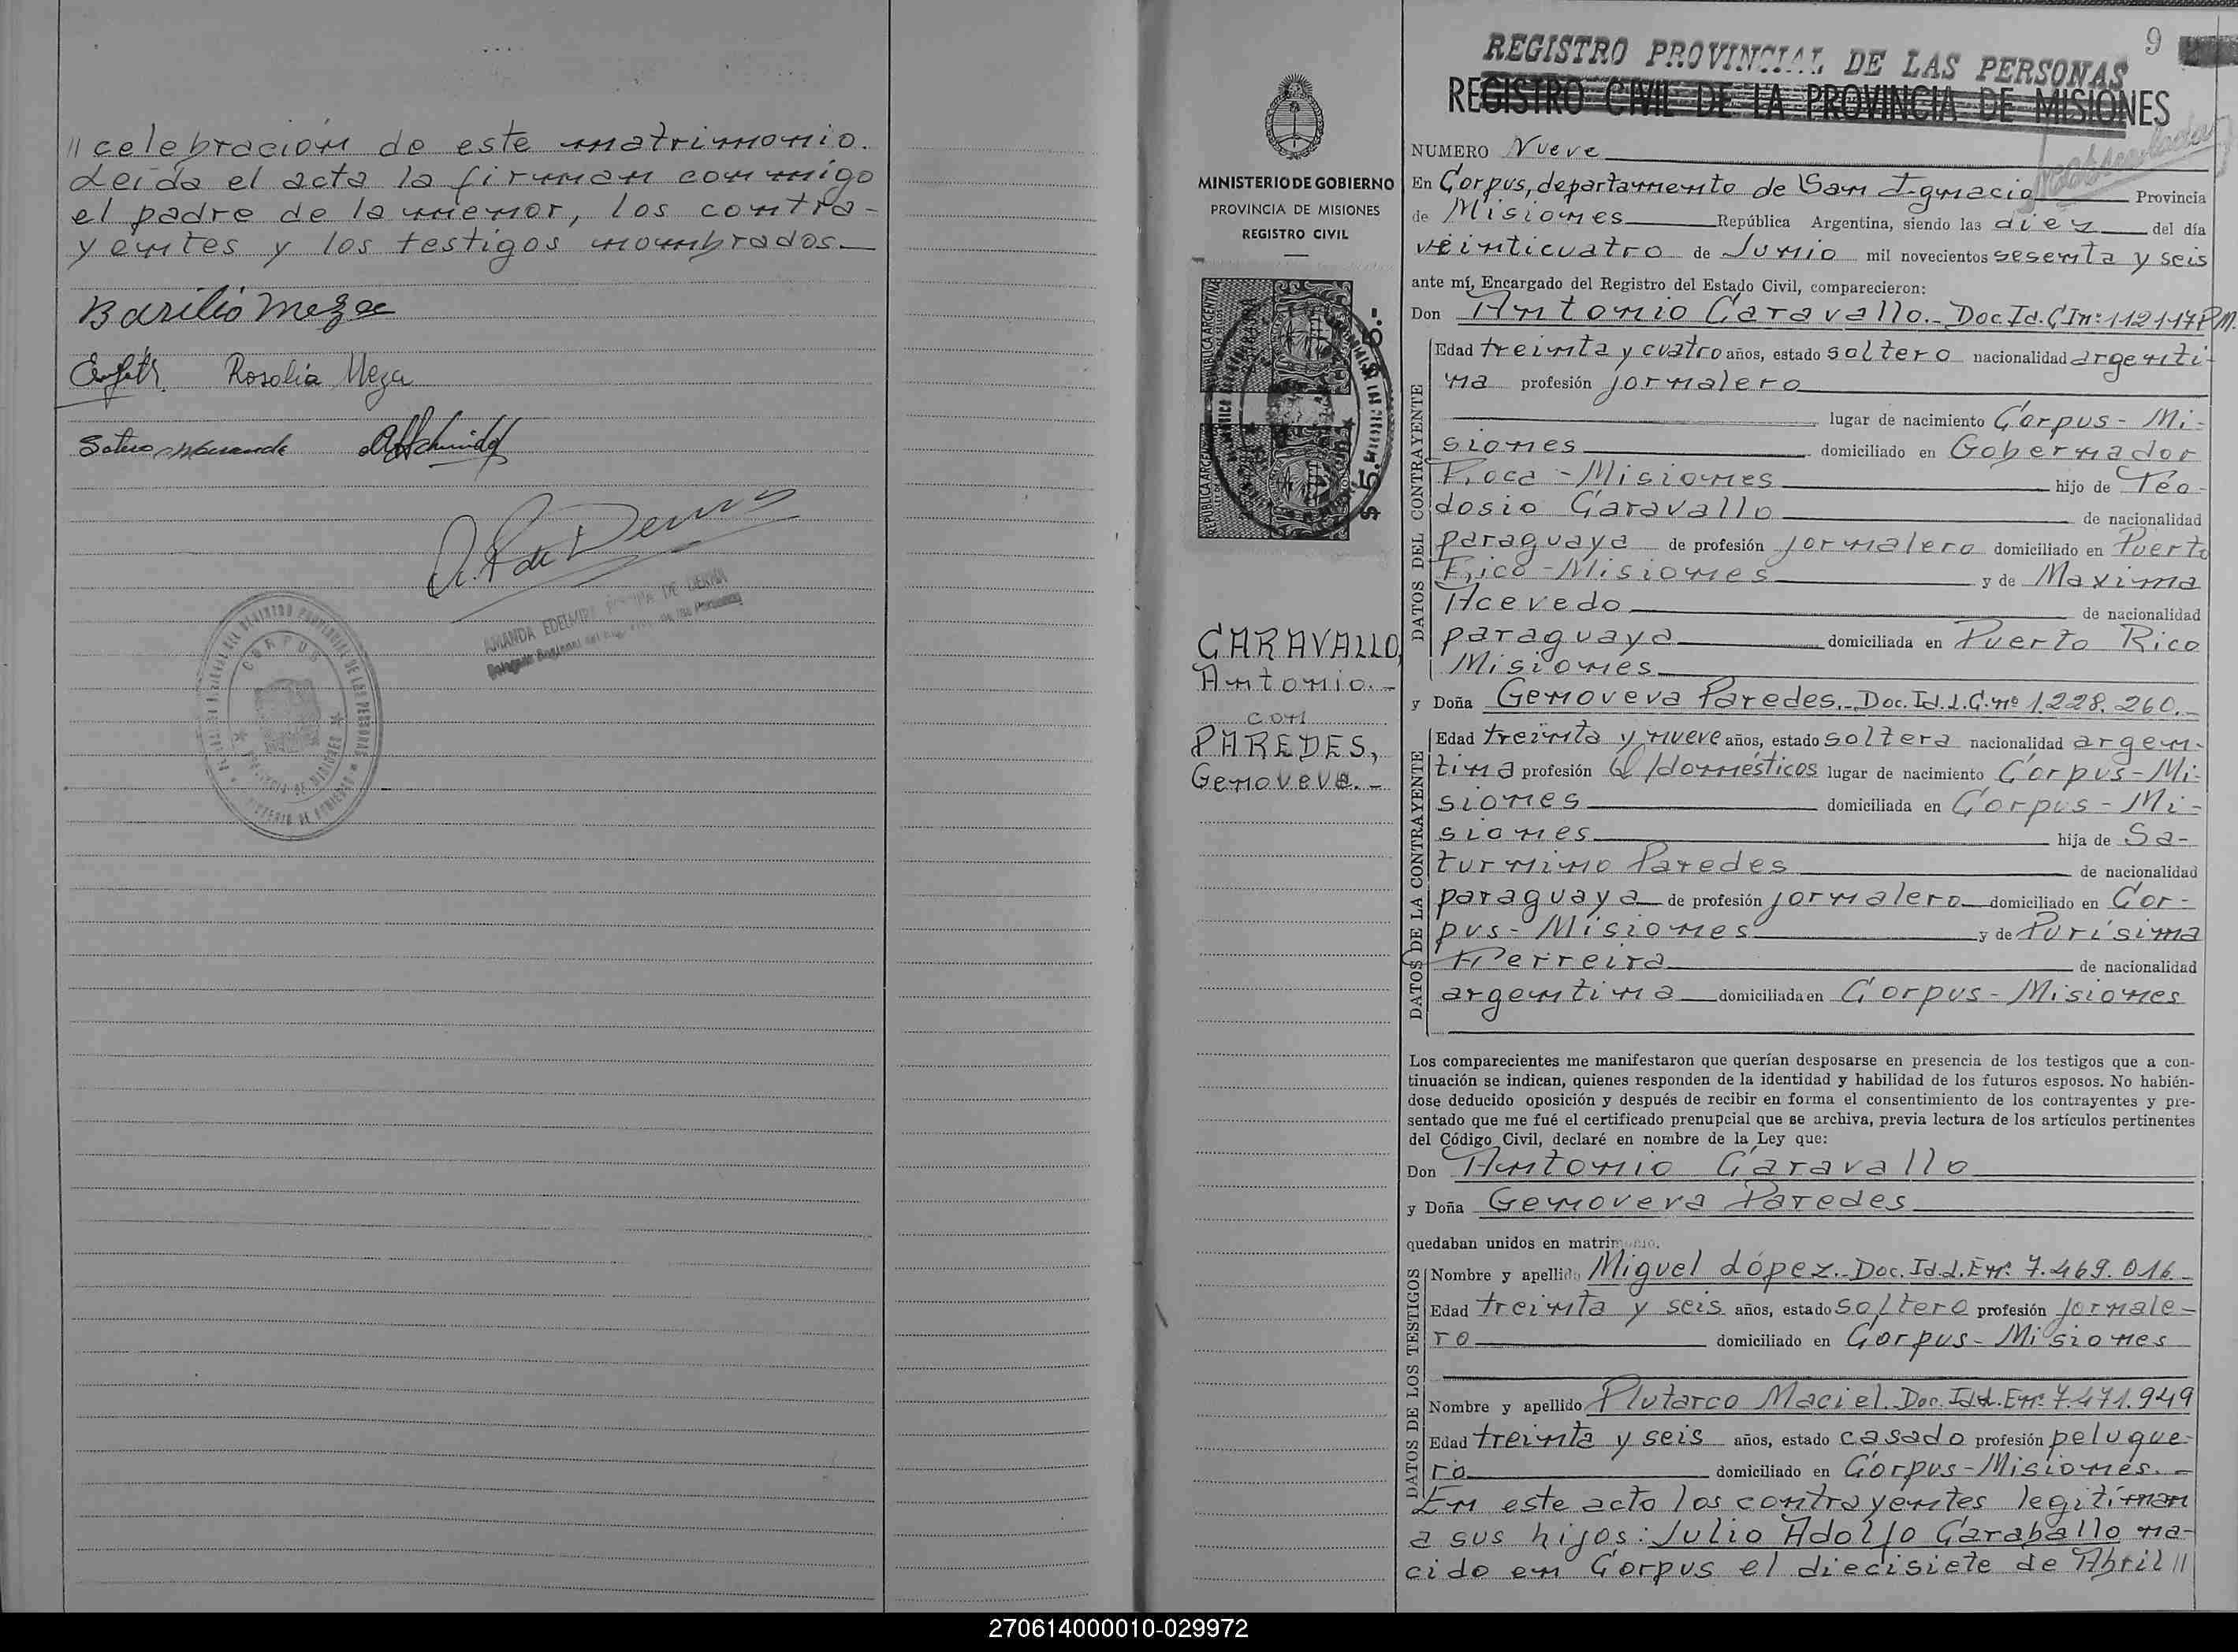 // celebración de este matrimonio.
Leída el acta la firman conmigo
el padre de la menor, los contra-
yentes y los testigos nombrados.
Basilio Meza
Rosalia Meza
CORPUS
MINISTERIO DE GOBIERNO
PROVINCIA DE MISIONES
REGISTRO CIVIL
$ 5.-
CARAVALLO,
Antonio.-
con
PAREDES,
Genoveva.-
9
REGISTRO PROVINCIAL DE LAS PERSONAS
REGISTRO CIVIL DE LA PROVINCIA DE MISIONES
NUMERO Nueve
En Corpus, departamento de San Ignacio Provincia
de Misiones República Argentina, siendo las diez del día
veinticuatro de Junio mil novecientos sesenta y seis
ante mí, Encargado del Registro del Estado Civil, comparecieron:
Don Antonio Caravallo.- Doc. Id. C.I nº 112117 P.M.
DATOS DEL CONTRAYENTE
Edad treinta y cuatro años, estado soltero nacionalidad argenti-
na profesión jornalero
lugar de nacimiento Corpus - Mi-
siones domiciliado en Gobernador
Roca - Misiones hijo de Teo-
dosio Caravallo de nacionalidad
paraguaya de profesión jornalero domiciliado en Puerto
Rico - Misiones y de Maxima
Acevedo de nacionalidad
paraguaya domiciliada en Puerto Rico
Misiones
y Doña Genoveva Paredes.- Doc. Id. L.C. nº 1.228.260.-
DATOS DE LA CONTRAYENTE
Edad treinta y nueve años, estado soltera nacionalidad argen-
tina profesión Q/domésticos lugar de nacimiento Corpus - Mi-
siones domiciliada en Corpus - Mi-
siones hija de Sa-
turnino Paredes de nacionalidad
paraguaya de profesión jornalero domiciliado en Cor-
pus - Misiones y de Purísima
Ferreira de nacionalidad
argentina domiciliada en Corpus - Misiones
Los comparecientes me manifestaron que querían desposarse en presencia de los testigos que a con-
tinuación se indican, quienes responden de la identidad y habilidad de los futuros esposos. No habién-
dose deducido oposición y después de recibir en forma el consentimiento de los contrayentes y pre-
sentado que me fué el certificado prenupcial que se archiva, previa lectura de los artículos pertinentes
del Código Civil, declaré en nombre de la Ley que:
Don Antonio Caravallo
y Doña Genoveva Paredes
quedaban unidos en matrimonio.
DATOS DE LOS TESTIGOS
Nombre y apellido Miguel López.- Doc. Id. L.E nº 7.469.016.-
Edad treinta y seis años, estado soltero profesión jornale-
ro domiciliado en Corpus - Misiones
Nombre y apellido Plutarco Maciel. Doc. Id. L.E nº 7.471.949
Edad treinta y seis años, estado casado profesión peluque-
ro domiciliado en Corpus - Misiones.-
En este acto los contrayentes legitiman
a sus hijos: Julio Adolfo Caraballo na-
cido en Corpus el diecisiete de Abril //
270614000010-029972